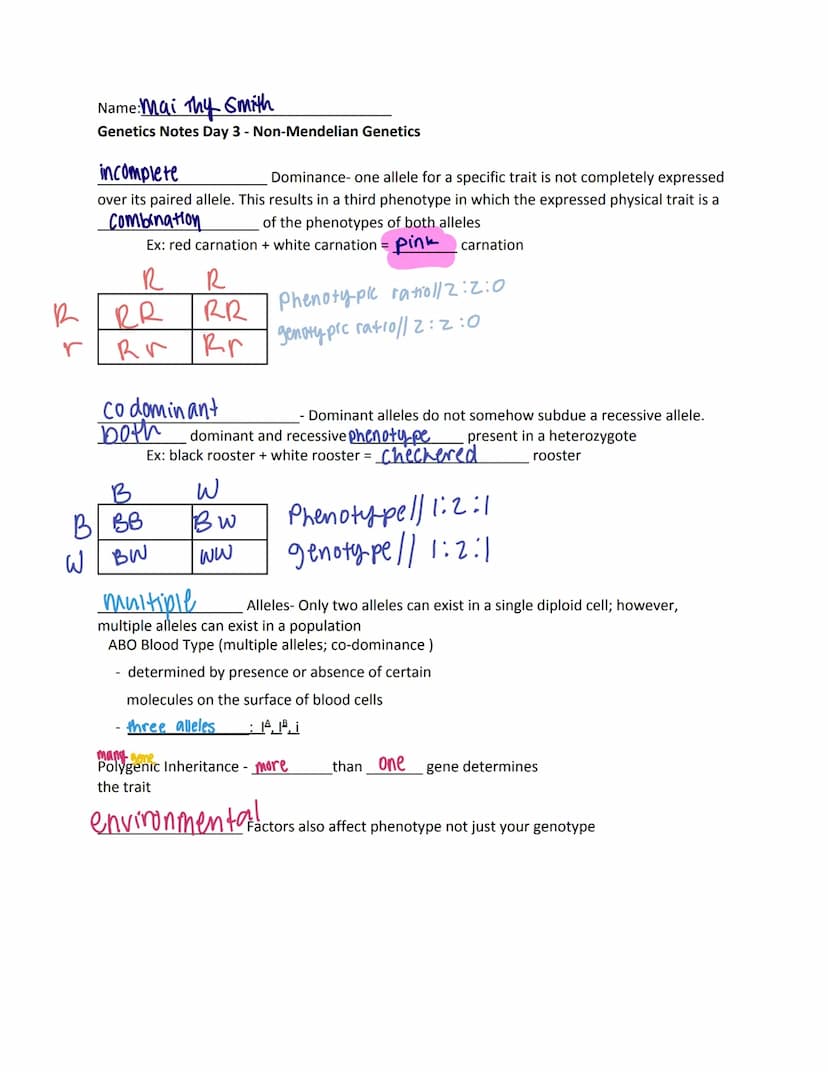 Name: Mai Thy Smith
Genetics Notes Day 3 - Non-Mendelian Genetics
incomplete Dominance- one allele for a specific trait is not completely expressed
over its paired allele. This results in a third phenotype in which the expressed physical trait is a
combination of the phenotypes of both alleles
Ex: red carnation + white carnation = pink carnation
R R
R RR RR
r Rr Rr
Phenotypic ratio// 2:2:0
genotypic ratio// 2:2:0
codominant - Dominant alleles do not somehow subdue a recessive allele.
both dominant and recessive phenotype present in a heterozygote
Ex: black rooster + white rooster = checkered rooster
B W
B BB BW
W BW WW
Phenotype// 1:2:1
genotype// 1:2:1
multiple Alleles- Only two alleles can exist in a single diploid cell; however,
multiple alleles can exist in a population
ABO Blood Type (multiple alleles; co-dominance )
- determined by presence or absence of certain
molecules on the surface of blood cells
- three alleles : Iᴬ, Iᴮ, i
many gene
Polygenic Inheritance - more than one gene determines
the trait
environmental Factors also affect phenotype not just your genotype